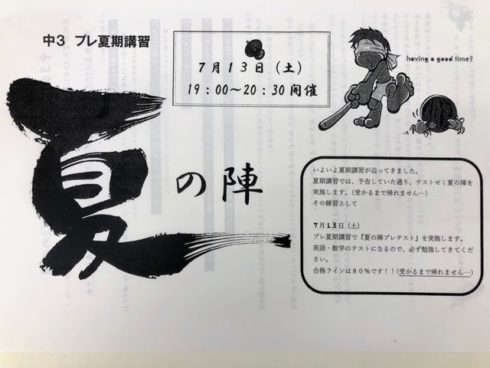 中3 プレ夏期講習
7月13日(土)
19:00~20:30開催
having a good time?
夏の陣
いよいよ夏期講習が迫ってきました。
夏期講習では、予告していた通り、テストゼミ夏の陣を
実施します。(受かるまで帰れません…)
その練習として
7月13日(土)
プレ夏期講習で『夏の陣プレテスト』を実施します。
英語・数学のテストになるので、必ず勉強してきてくだ
さい。
合格ラインは80%です!!(受かるまで帰れません…)